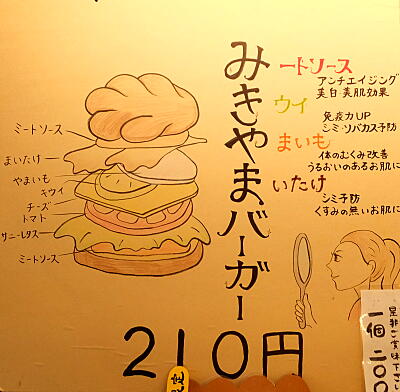 みきやまバーガー
ートソース
アンチエイジング
美白・美肌効果
ウイ
免疫力UP
シミ・ソバカス予防
まいも
体のむくみ改善
うるおいのあるお肌に
いたけ
シミ予防
くすみの無いお肌に
ミートソース
まいたけ
やまいも
キウイ
チーズ
トマト
サニーレタス
ミートソース
210円
是非ご賞味下さ
一個200